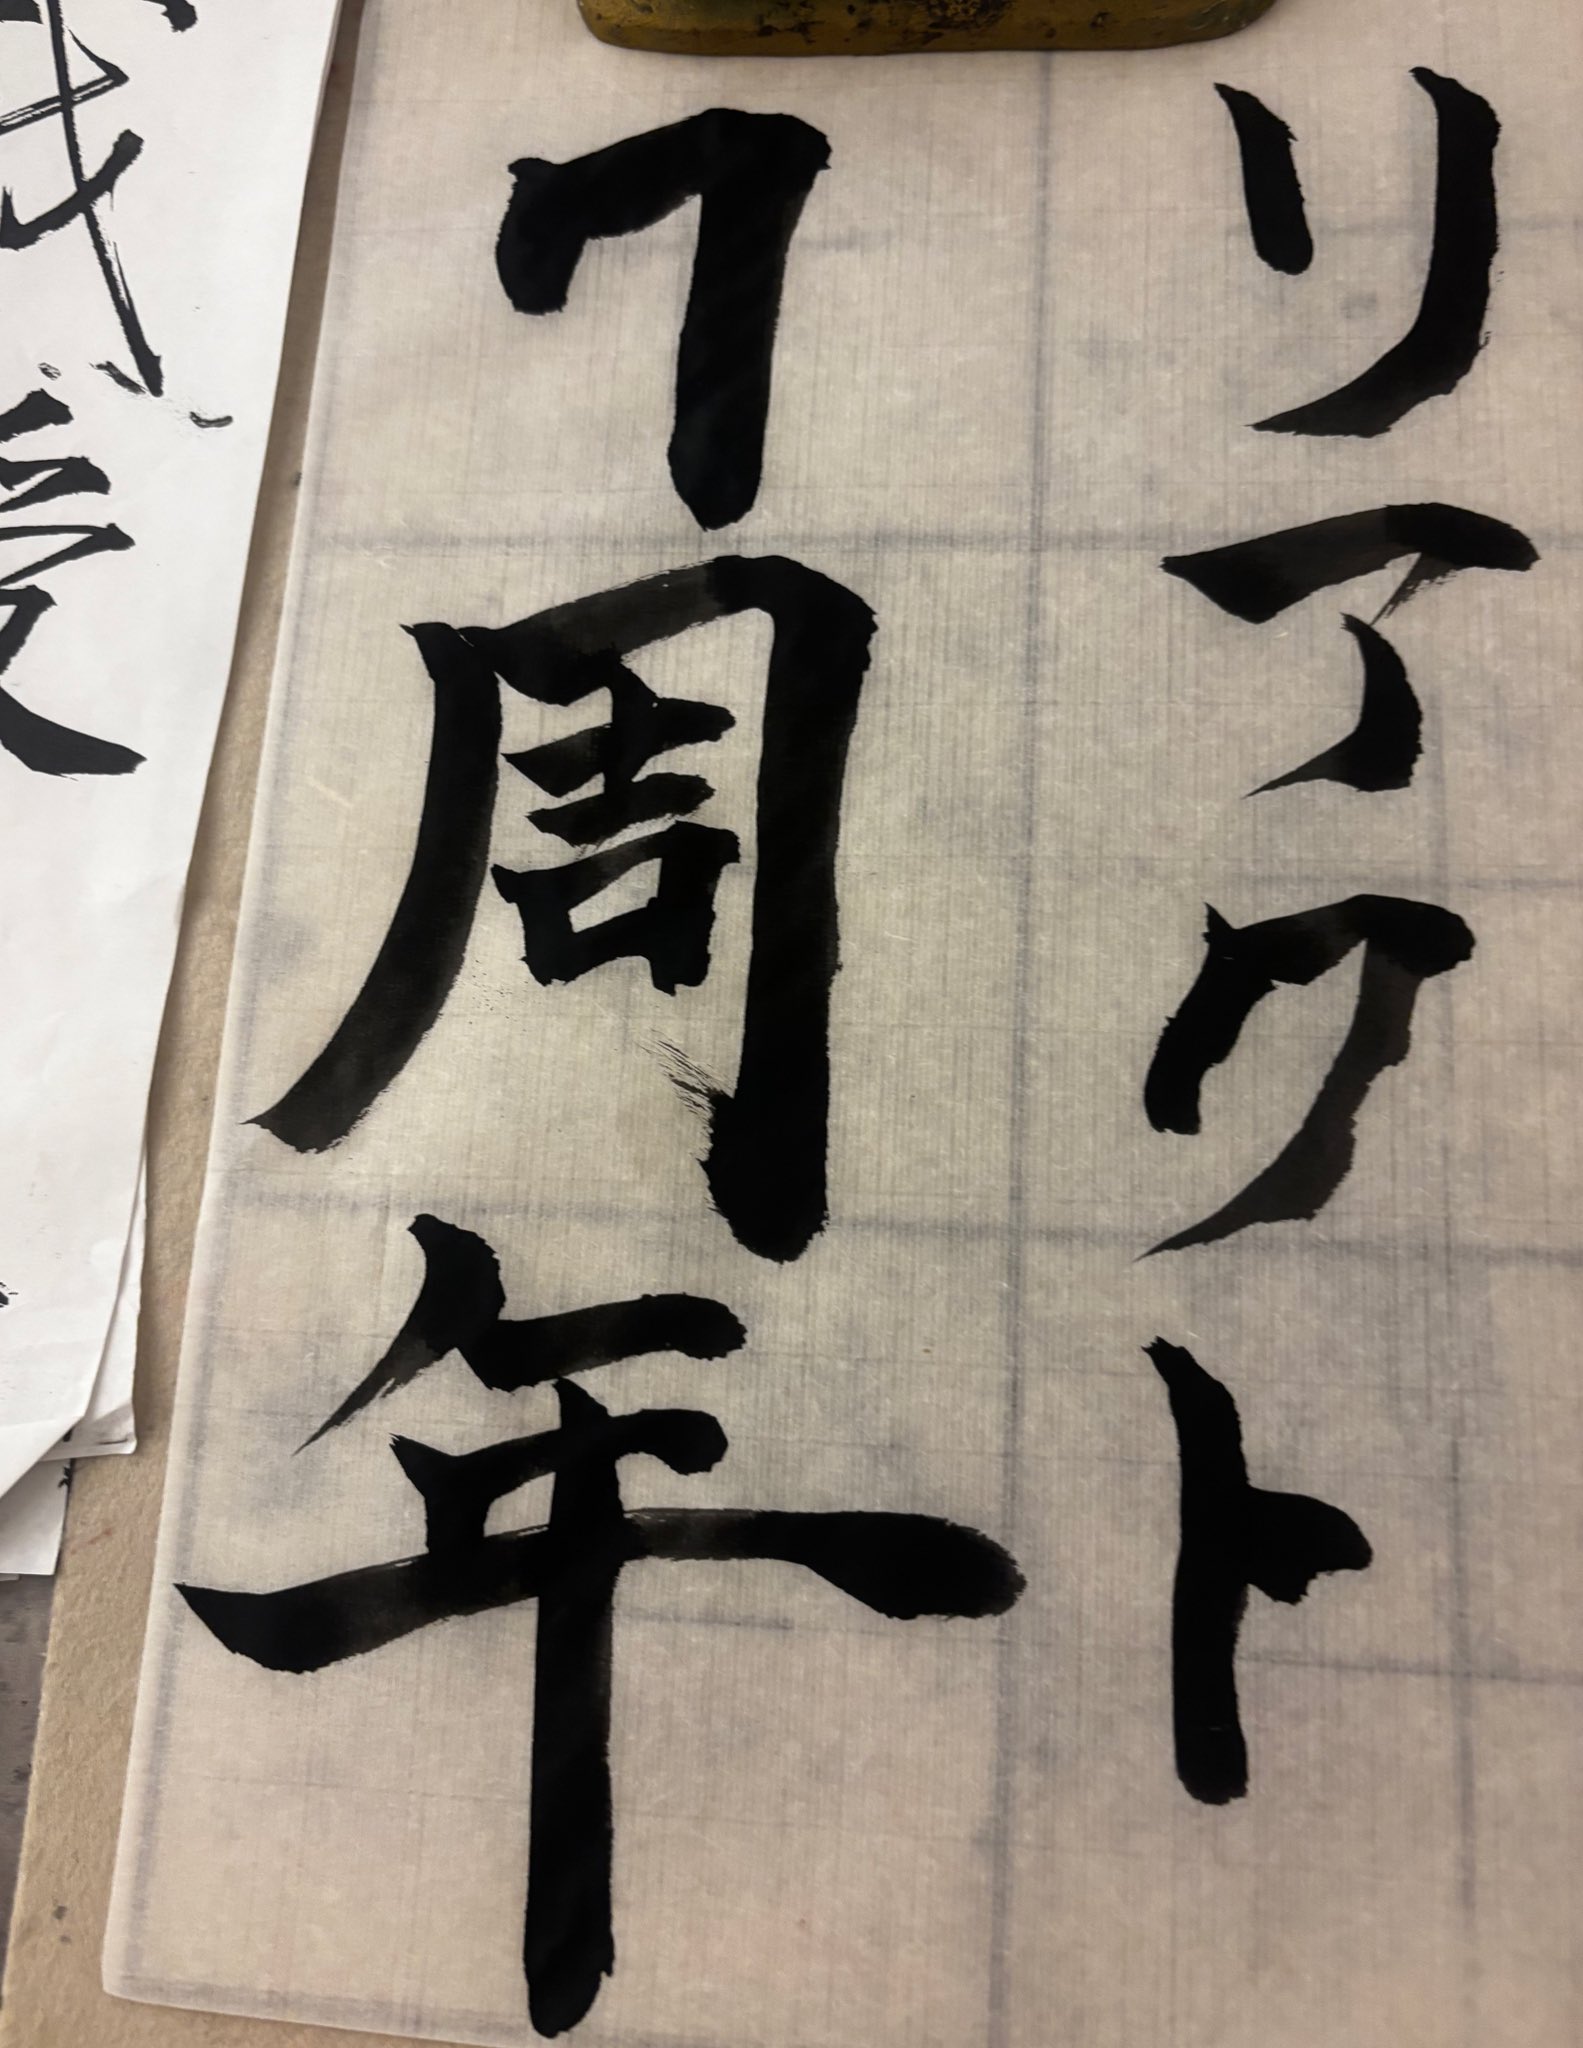 リアクト
7周年